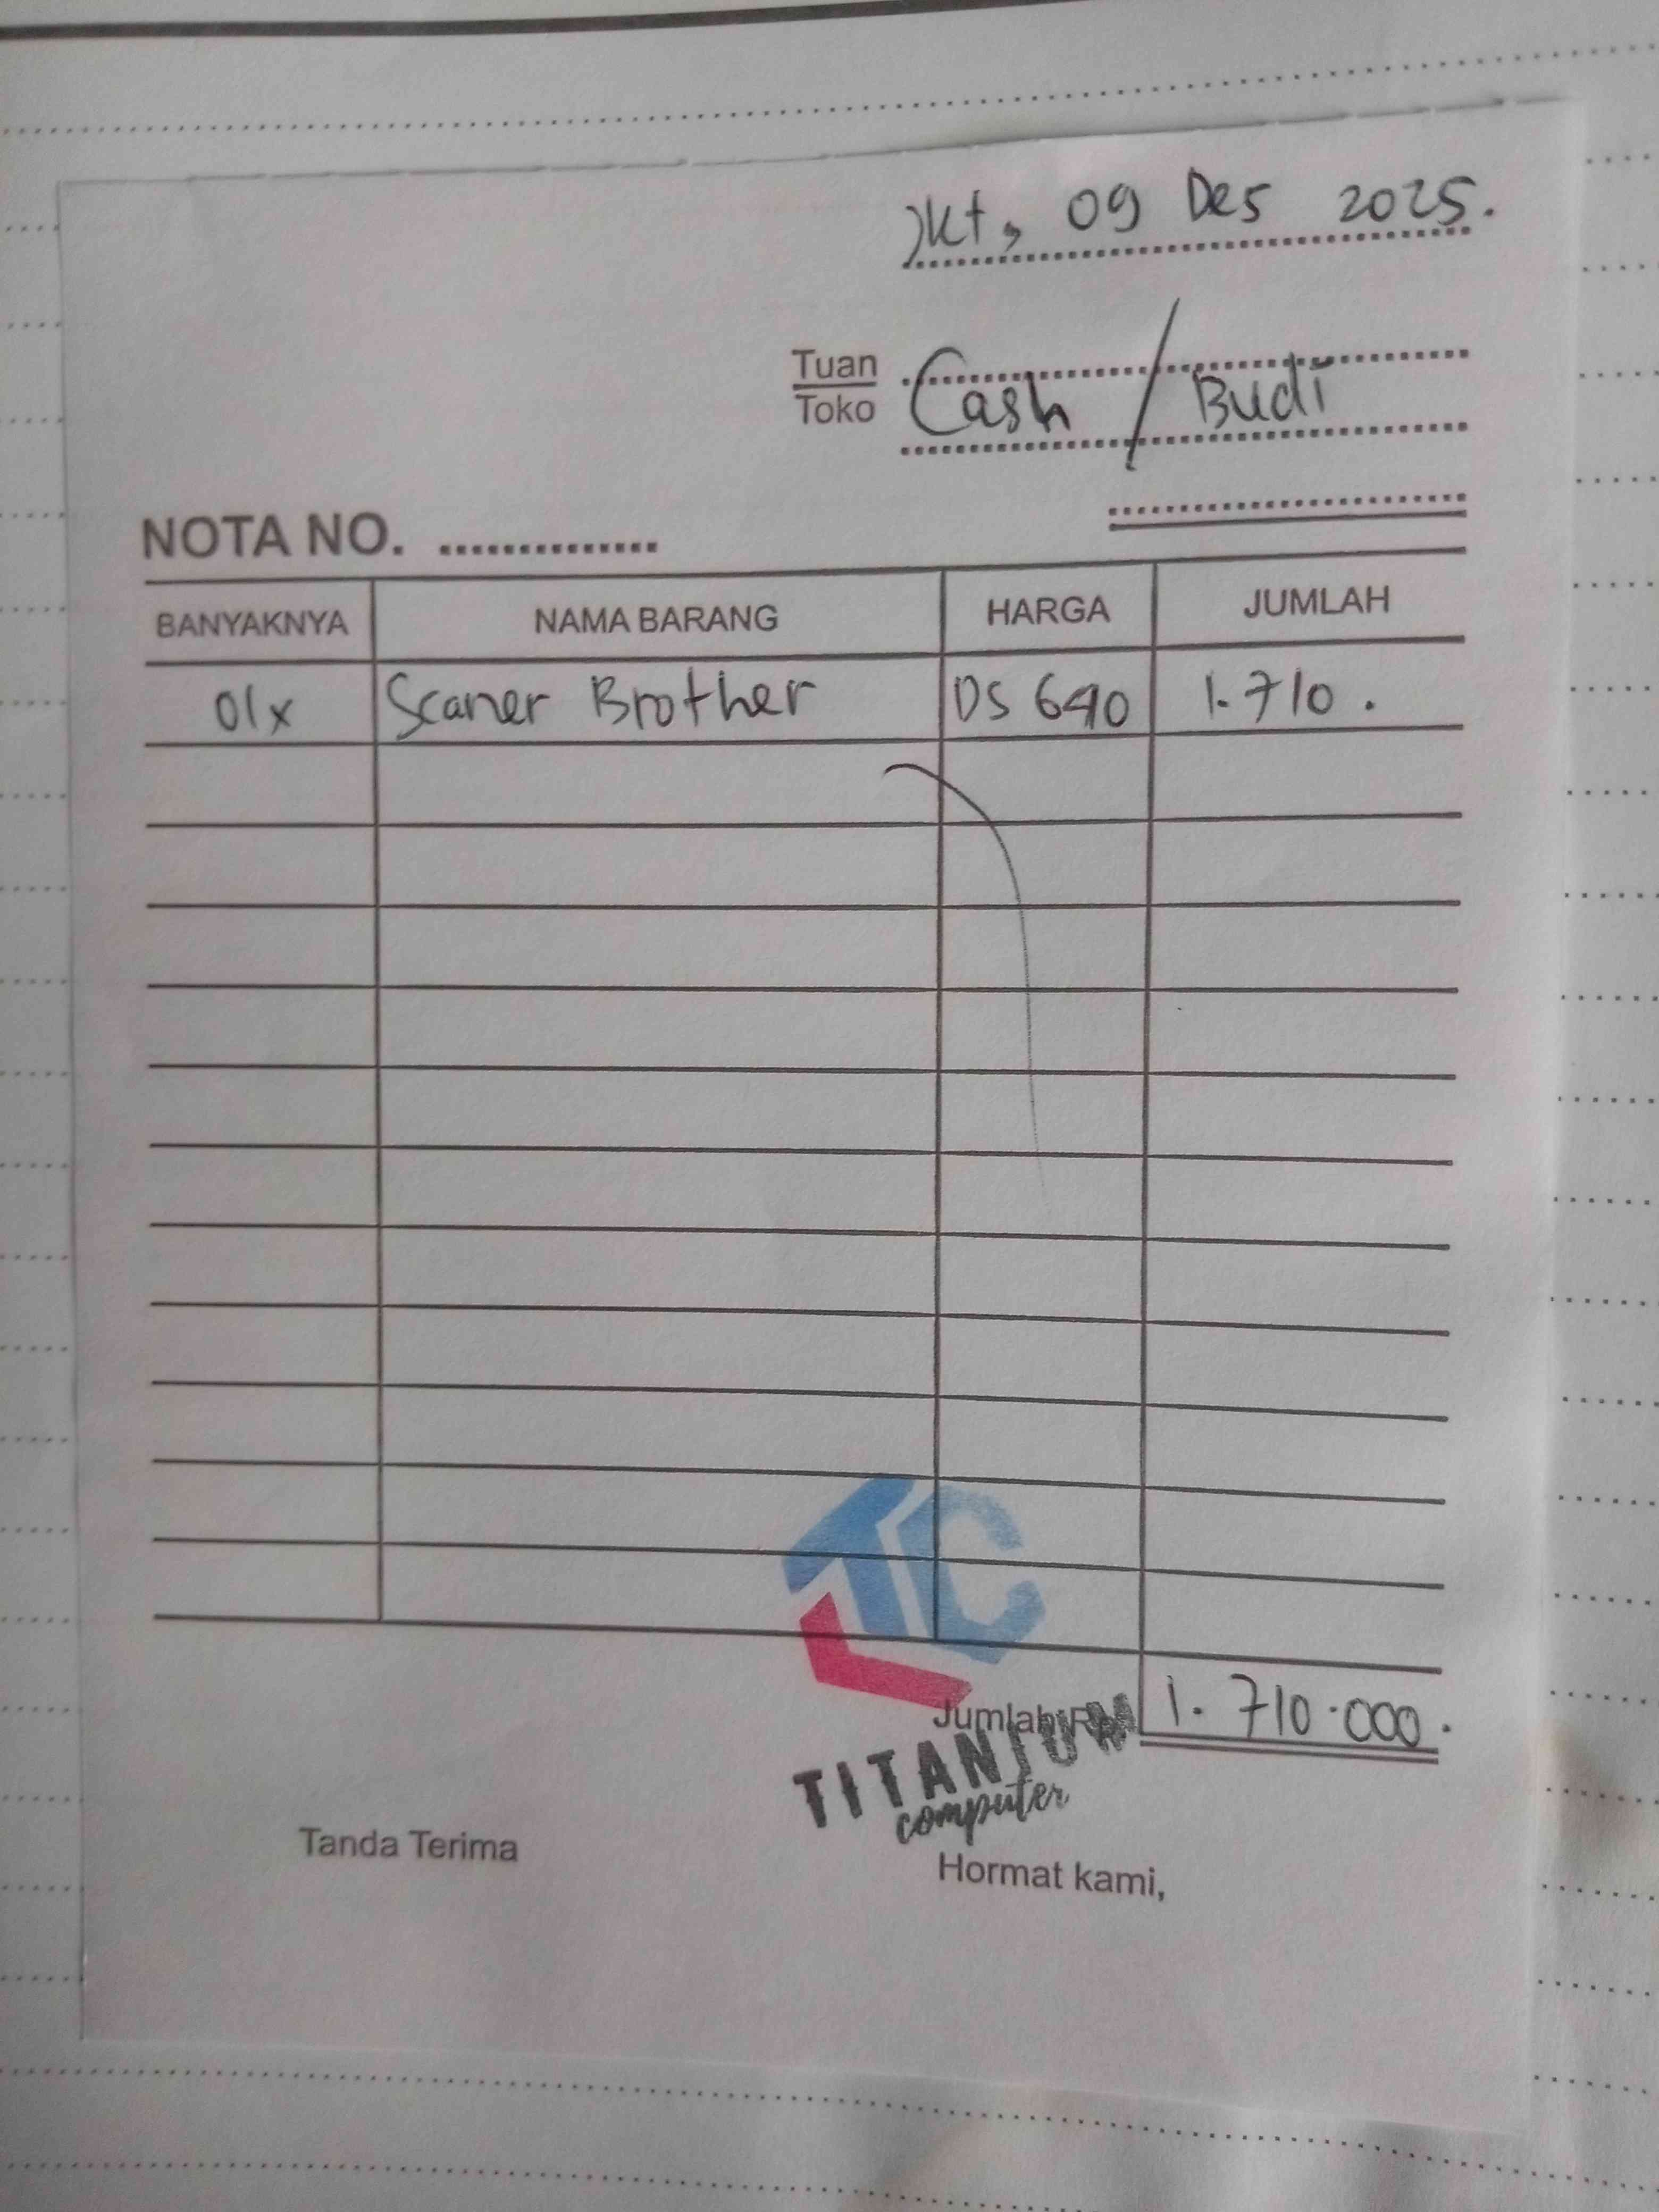 Jkt, 09 Des 2025.
Tuan
Toko
Cash / Budi
NOTA NO. ..............
BANYAKNYA NAMA BARANG HARGA JUMLAH
01x Scaner Brother DS 640 1.710.
TC
Jumlah Rp. 1.710.000.
TITANIUM
computer
Tanda Terima
Hormat kami,